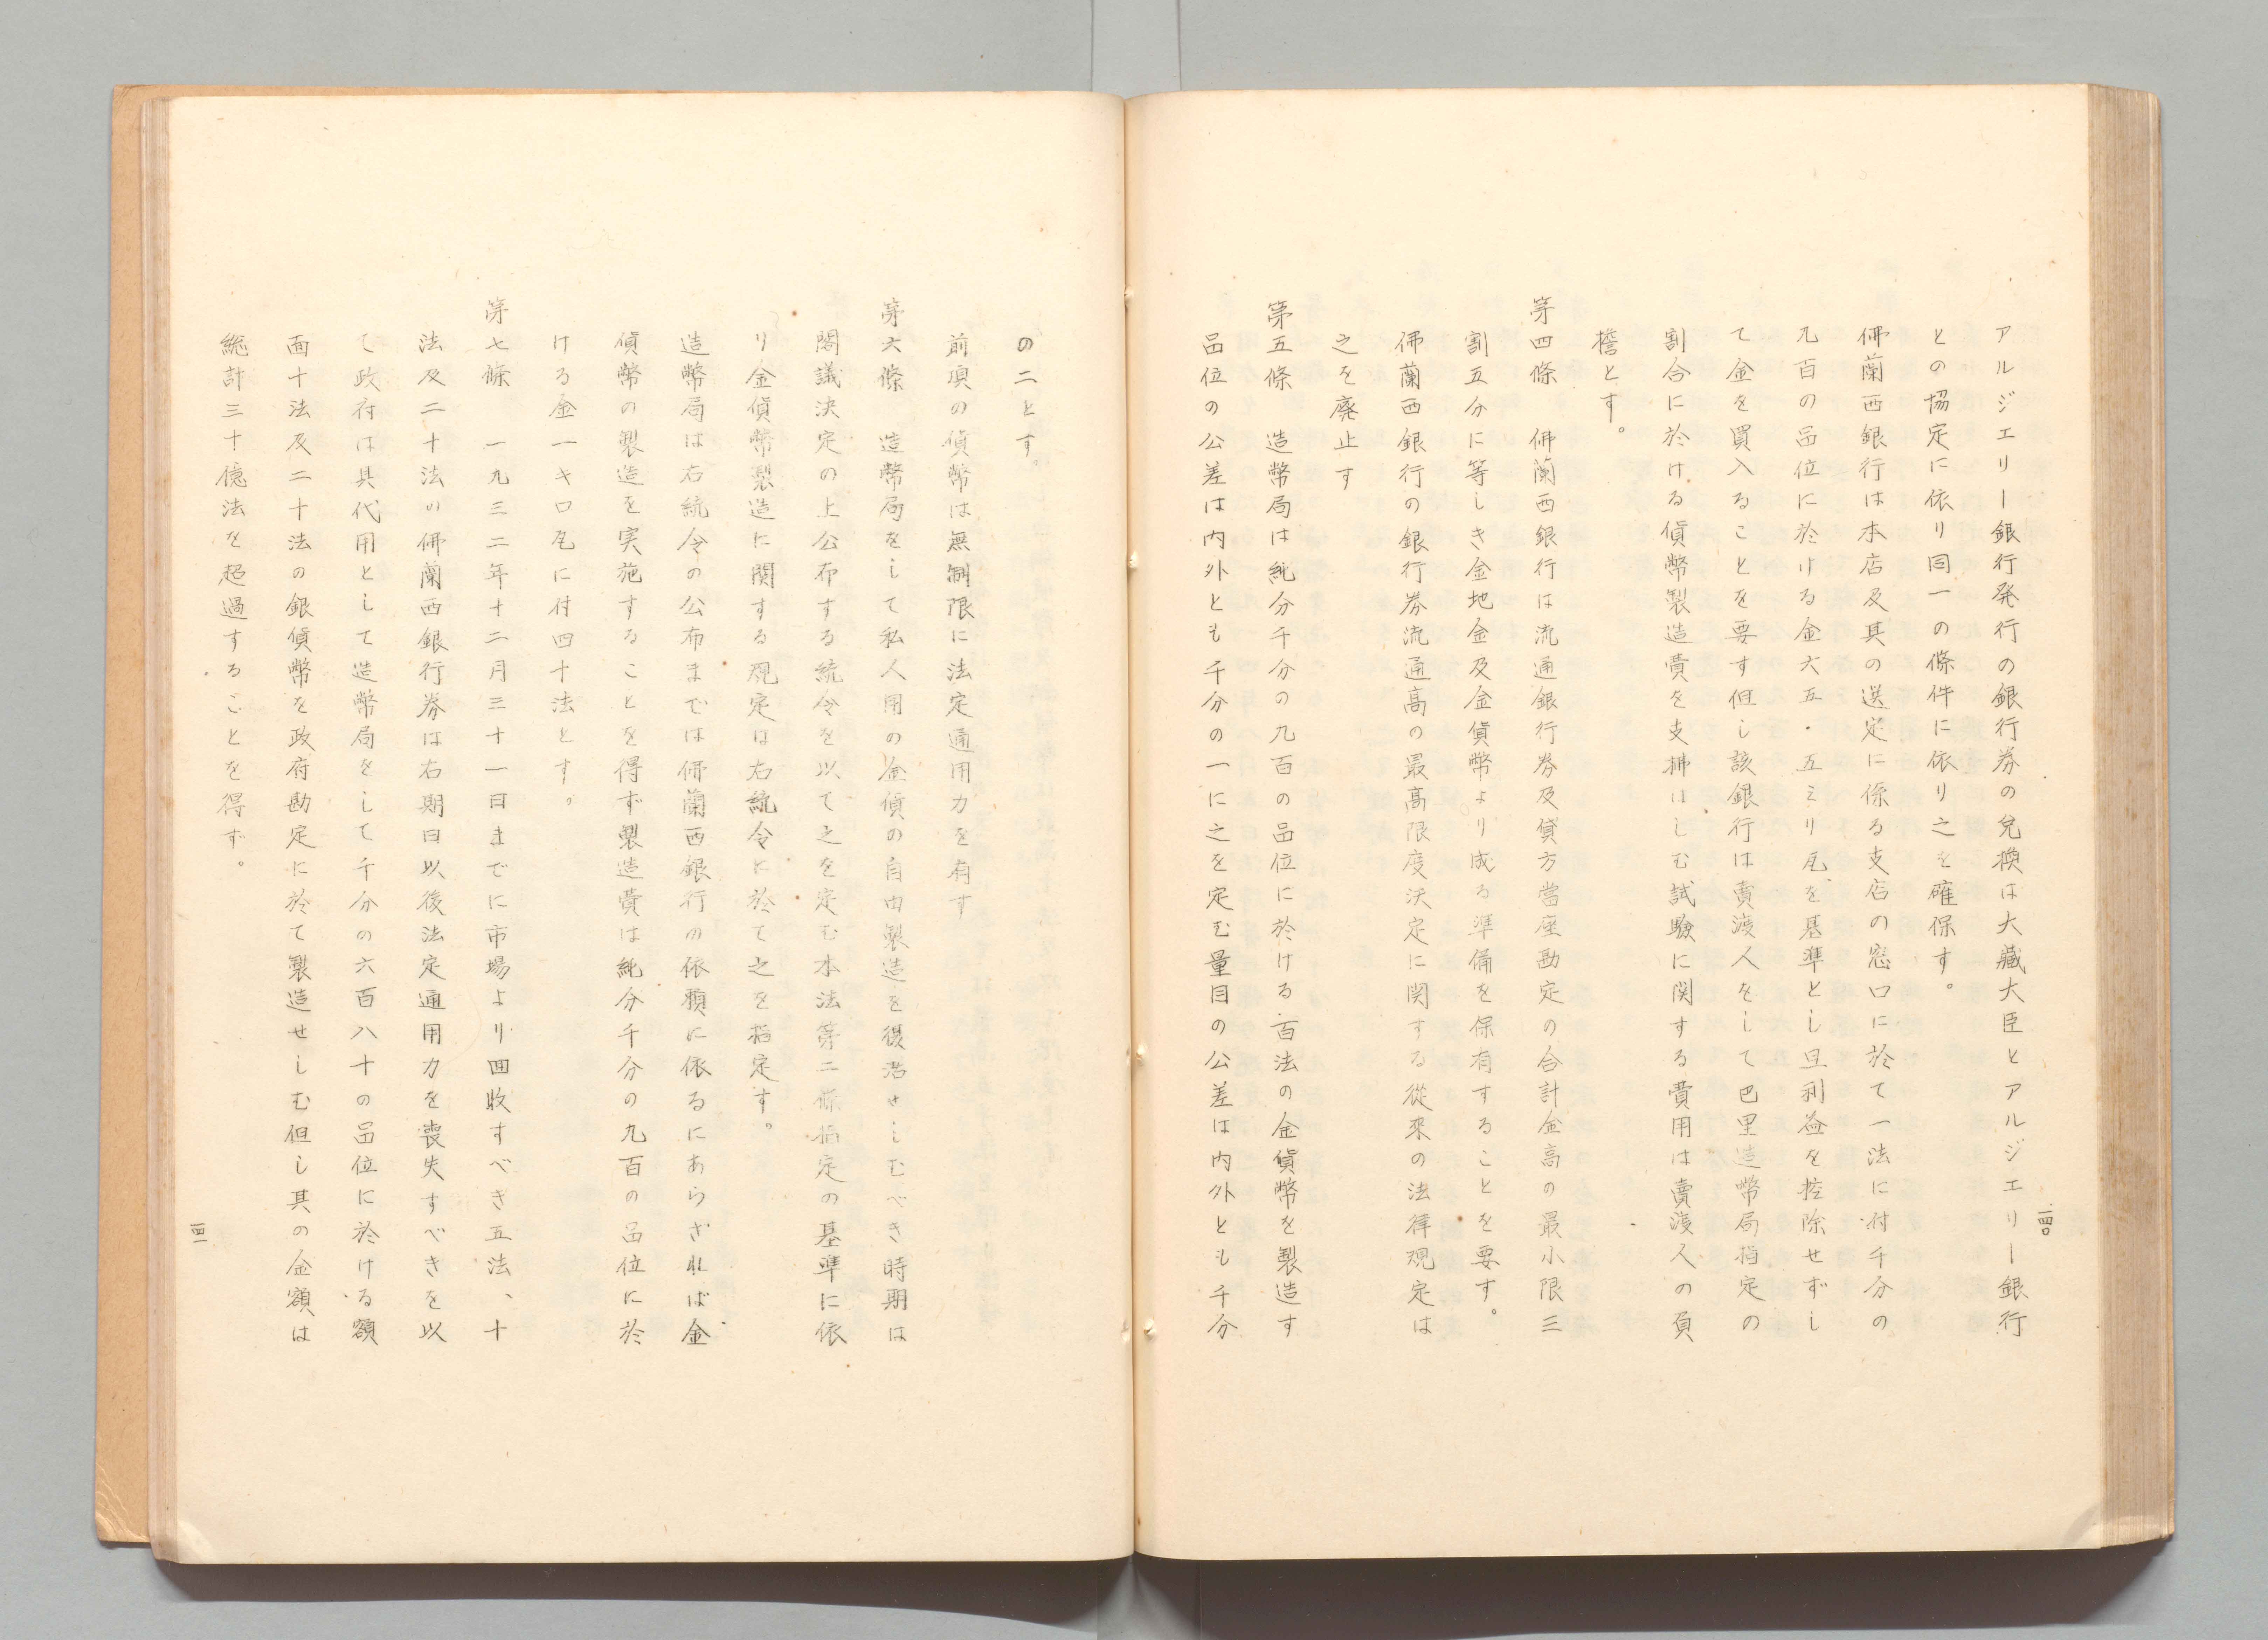 アルジエリー銀行発行の銀行券の兌換は大藏大臣とアルジエリー銀行
との協定に依り同一の條件に依り之を確保す。
佛蘭西銀行は本店及其の送定に係る支店の窓口に於て一法に付千分の
九百の品位に於ける金六五・五ミリ瓦を基準とし旦利益を控除せずし
て金を買入ることを要す但し該銀行は賣渡人をして巴里造幣局指定の
割合に於ける貨幣製造費を支拂はしむ試驗に関する費用は賣渡人の負
擔とす。
第四條　佛蘭西銀行は流通銀行券及貸方當座勘定の合計金高の最小限三
割五分に等しき金地金及金貨幣より成る準備を保有することを要す。
佛蘭西銀行の銀行券流通高の最高限度決定に関する從來の法律規定は
之を廃止す
第五條　造幣局は純分千分の九百の品位に於ける百法の金貨幣を製造す
品位の公差は内外とも千分の一に之を定む量目の公差は内外とも千分
一四〇
の二とす。
前項の貨幣は無制限に法定通用力を有す
第六條　造幣局をして私人用の金貨の自由製造を復活せしむべき時期は
閣議決定の上公布する統令を以て之を定む本法第二條指定の基準に依
り金貨幣製造に関する規定は右統令に於て之を指定す。
造幣局は右統令の公布までは佛蘭西銀行の依賴に依るにあらざれば金
貨幣の製造を実施することを得ず製造費は純分千分の九百の品位に於
ける金一キロ瓦に付四十法とす。
第七條　一九三二年十二月三十一日までに市場より囬收すべき五法、十
法及二十法の佛蘭西銀行券は右期日以後法定通用力を喪失すべきを以
て政府は其代用として造幣局をして千分の六百八十の品位に於ける額
面十法及二十法の銀貨幣を政府勘定に於て製造せしむ但し其の金額は
総計三十億法を超過することを得ず。
一四一